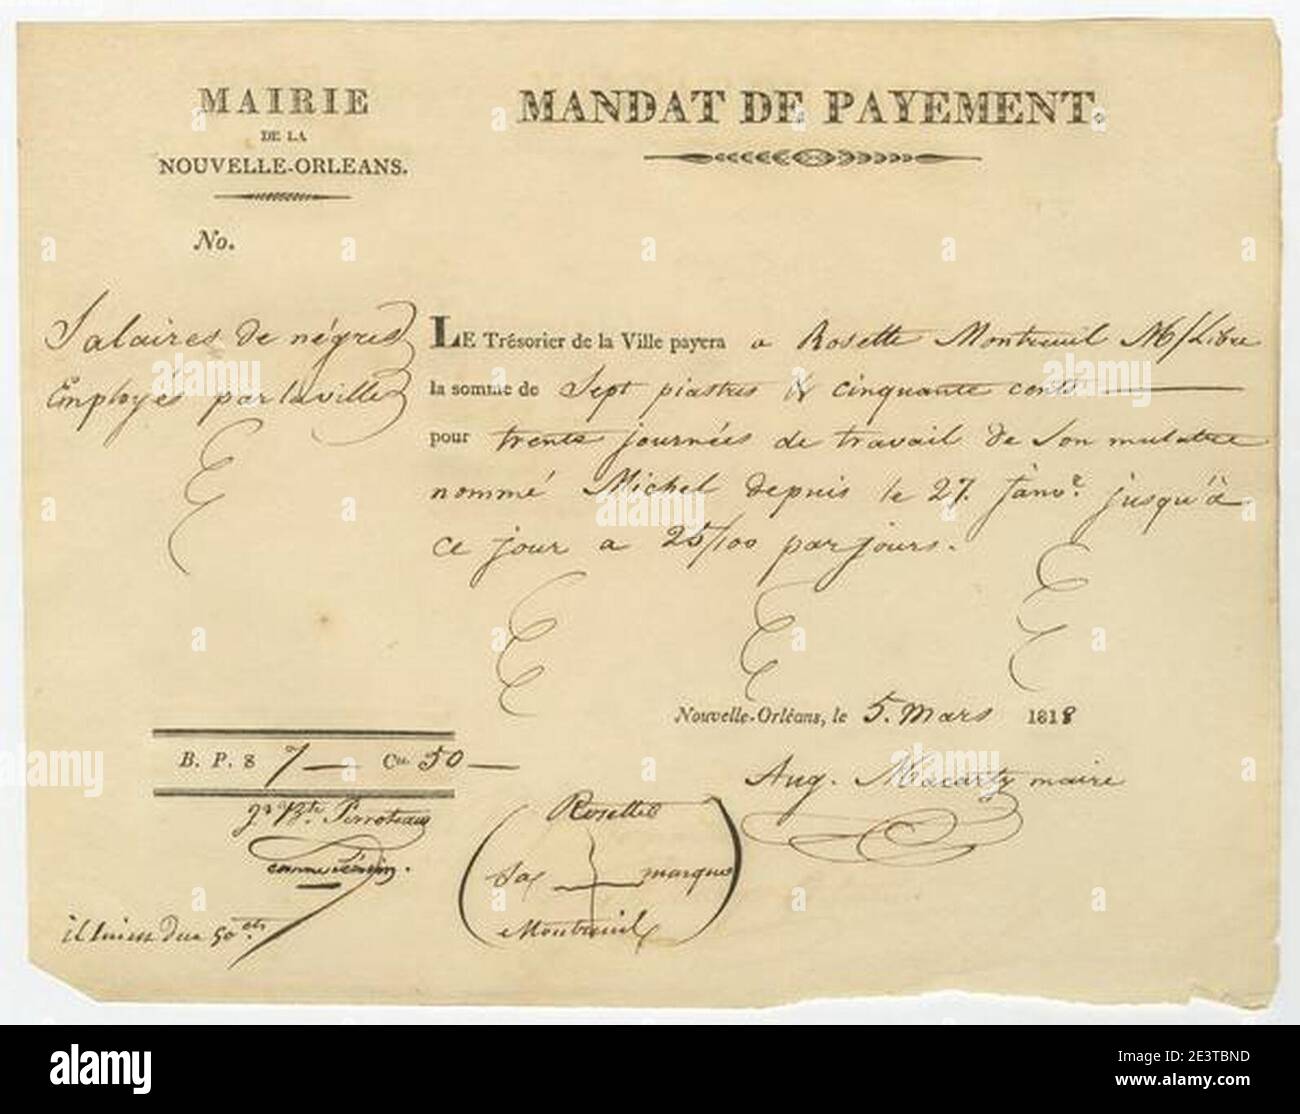 MAIRIE
DE LA
NOUVELLE-ORLEANS.
No.
MANDAT DE PAYEMENT.
Salaires de négres
Employés par la ville
LE Trésorier de la Ville payera a Rosette Montreuil M/Libre
la somme de Sept piastres & cinquante cents
pour trente journées de travail de Son mulatre
nommé Michel depuis le 27. Janvr. jusqu'à
ce jour a 25/100 par jours.
Nouvelle-Orléans, le 5. Mars 1818
Aug. Macarty maire
B. P. $ 7 — Cts. 50 —
Jn Bte
Rosette
Sa marque
Montreuil
50 cts
alamy
Image ID: 2E3TBND
www.alamy.com